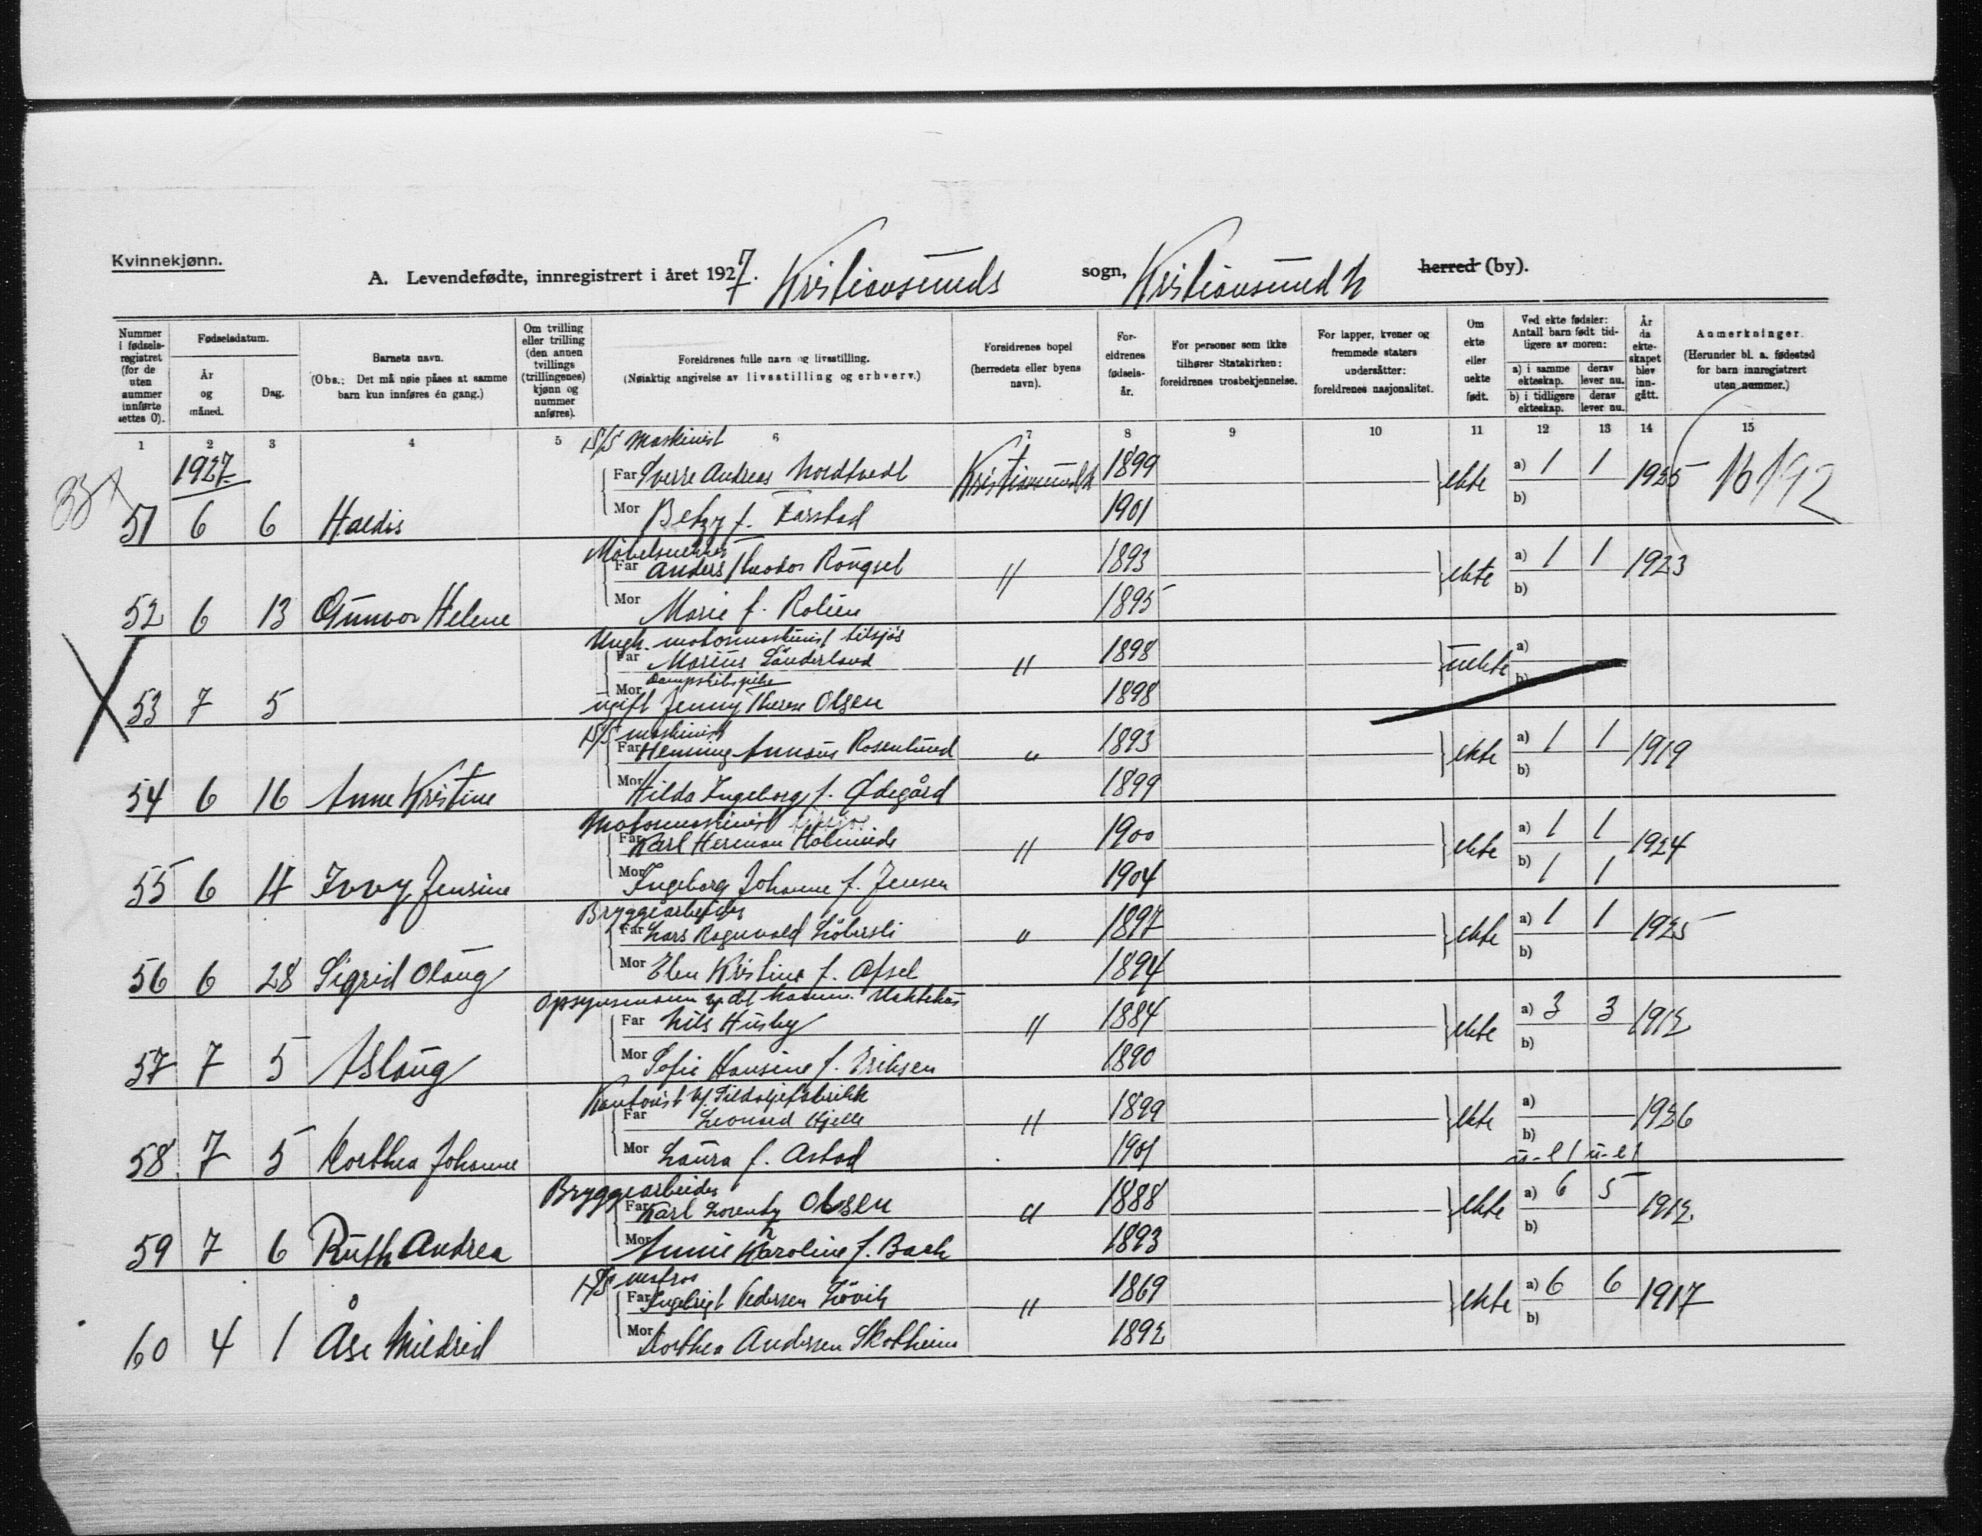 Kvinnekjønn.
A. Levendefødte, innregistrert i året 1927. Kristiansunds sogn, Kristiansund N herred (by).
Nummer i fødsels-registret (for de uten nummer innførte settes 0).
Fødselsdatum.
År og måned.
Dag.
Barnets navn.
(Obs.: Det må nøie påses at samme barn kun innføres én gang.)
Om tvilling eller trilling (den annen tvillings (trillingenes) kjønn og nummer anføres).
Foreldrenes fulle navn og livsstilling.
(Nøiaktig angivelse av livsstilling og erhverv.)
Foreldrenes bopel (herredets eller byens navn).
For-eldrenes fødsels-år.
For personer som ikke tilhører Statskirken: foreldrenes trosbekjennelse.
For lapper, kvener og fremmede staters undersåtter: foreldrenes nasjonalitet.
Om ekte eller uekte født.
Ved ekte fødsler: Antall barn født tid-ligere av moren:
a) i samme ekteskap.
derav lever nu.
b) i tidligere ekteskap.
derav lever nu.
År da ekte-skapet blev inn-gått.
Anmerkninger.
(Herunder bl. a. fødested for barn innregistrert uten nummer.)
1 2 3 4 5 6 7 8 9 10 11 12 13 14 15
1927
S/S Maskinist
Far Sverre Andreas Nordtvedt Kristiansund N 1899 ekte a) 1 1 1925 16192
b)
51 6 6 Haldis Mor Betzy f. Farstad 1901
Møbelsnekker
Far Anders Theodor Rongset " 1893 ekte a) 1 1 1923
b)
52 6 13 Gunvor Helene Mor Marie f. Rolien 1895
Ungk. motormaskinist tilsjøs
Far Marius Sünderland " 1898 uekte a)
b)
Dampskibspike
53 7 5 Mor ugift Jenny Therese Olsen 1898
S/S maskinist
Far Henning Annæus Rosenlund " 1893 ekte a) 1 1 1919
b)
54 6 16 Anne Kristine Mor Hilda Ingeborg f. Ødegård 1899
Motormaskinist tilsjøs
Far Karl Herman 1900 ekte a) 1 1 1924
" b) 1 1
55 6 Jensine Mor Ingeborg Johanne f. Jensen 1904
Bryggearbeider
Far Lars Ragnvald " 1897 ekte a) 1 1 1925
b)
56 6 28 Sigrid Olaug Mor Elen Kristine f. 1894
Opsynsmann
Far Nils Husby " 1884 ekte a) 3 3 1912
b)
57 7 5 Aslaug Mor Sofie Hansine f. Eriksen 1890
Kontorist v/ Sildoljefabrikk
Far Leonard Hjelle " 1899 ekte a) 1926
b)
58 7 5 Dorthea Johanne Mor Laura f. Astad 1901 u-e 1 u-e 1
Bryggearbeider
Far Karl Lorentz Olsen " 1888 ekte a) 6 5 1912
b)
59 7 6 Ruth Andrea Mor Annie Karoline f. Bach 1893
S/S matros
Far Ingebrigt Pedersen Løvik " 1869 ekte a) 6 6 1917
b)
60 4 1 Åse Mildrid Mor Dorthea Andersen Skotheim 1892